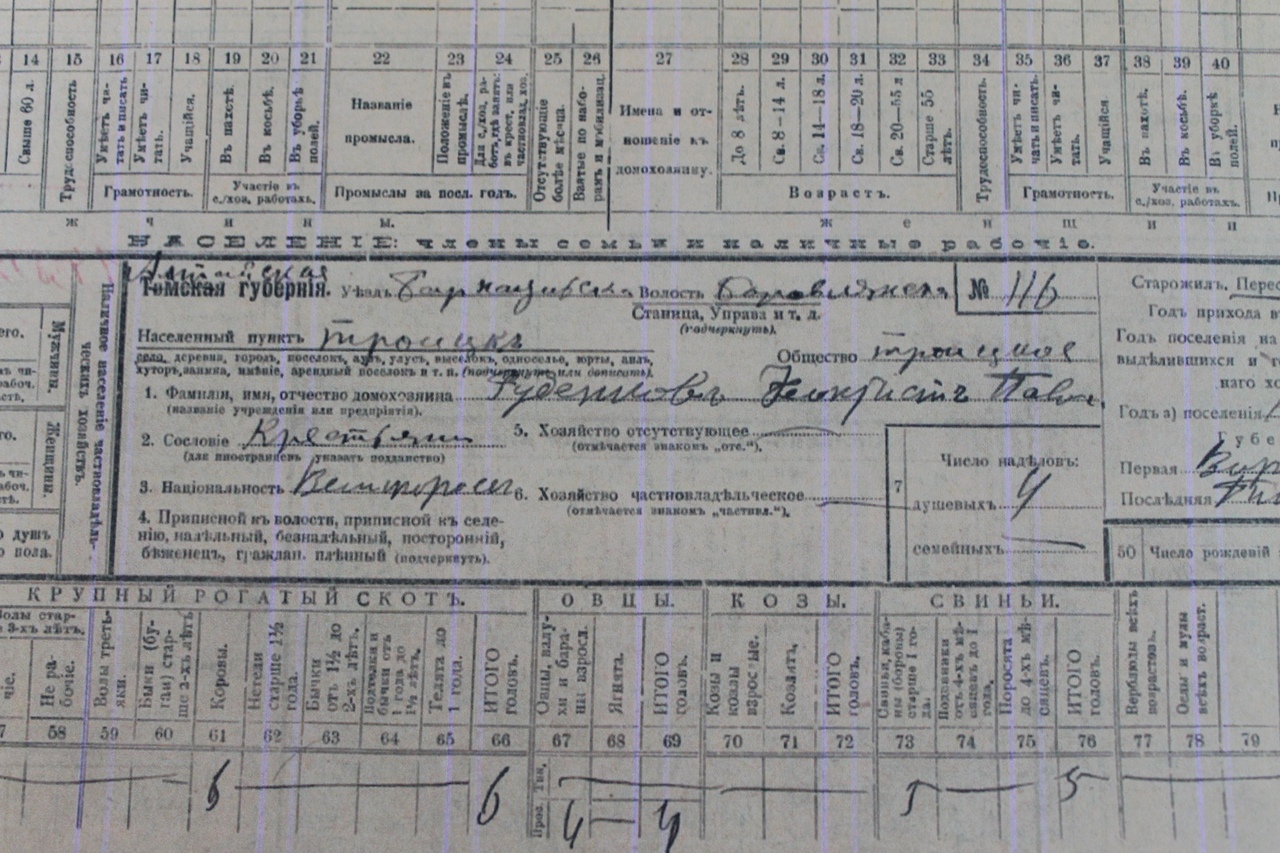 14 15 16 17 18 19 20 21 22 23 24 25 26 27 28 29 30 31 32 33 34 35 36 37 38 39 40
Свыше 60 л.
Трудоспособность
Умѣетъ чи-
тать и писать
Умѣетъ чи-
тать.
Учащійся.
Въ пахотѣ.
Въ косьбѣ.
Въ уборкѣ
полей.
Названіе
промысла.
Положеніе въ
промыслѣ.
Для с./хоз. ра-
бот., гдѣ занятъ:
въ крест. или
частновлад. хоз.
Отсутствующіе
болѣе мѣс-ца.
Взятые по набо-
рамъ и мобилизац.
Имена и от-
ношеніе къ
домохозяину.
До 8 лѣтъ.
Св. 8—14 л.
Св. 14—18 л.
Св. 18—20 л.
Св. 20—55 л
Старше 55
лѣтъ.
Трудоспособность.
Умѣетъ чи-
тать и писать.
Умѣетъ чи-
тать.
Учащійся.
Въ пахотѣ.
Въ косьбѣ.
Въ уборкѣ
полей.
Грамотность.
Участіе въ
с./хоз. работахъ.
Промыслы за посл. годъ.
Возрастъ.
Грамотность.
Участіе въ
с./хоз. работахъ.
ж ч и н ы. ж е н щ и н
НАСЕЛЕНІЕ: члены семьи и наличные рабочіе.
Наличное населеніе частновладѣль-
ческихъ хозяйствъ.
Мужчины.
Женщины.
Алтайская
Томская губернія. Уѣздъ Барнаульск Волость Боровлянская № 116
Станица, Управа и т. д.
(подчеркнуть).
Населенный пунктъ Троицкъ
село, деревня, городъ, поселокъ, аулъ, улусъ, выселокъ, односелье, юрты, аилъ,
хуторъ, заимка, имѣніе, арендный поселокъ и т. п. (подчеркнуть или дописать).
Общество троицкое
1. Фамилія, имя, отчество домохозяина Феоктистъ Павл
(названіе учрежденія или предпріятія).
2. Сословіе Крестьянин
(для иностранцевъ указать подданство)
3. Національность Великоросс
4. Приписной къ волости, приписной къ селе-
нію, надѣльный, безнадѣльный, посторонній,
бѣженецъ, граждан. плѣнный (подчеркнуть).
5. Хозяйство отсутствующее
(отмѣчается знакомъ „отс.“).
6. Хозяйство частновладѣльческое
(отмѣчается знакомъ „частвл.“).
7
Число надѣловъ:
душевыхъ 4
семейныхъ
Старожилъ. Перес
Годъ прихода в
Годъ поселенія на
выдѣлившихся и
наго хо
Годъ а) поселенія
Губе
Первая
Послѣдняя
50 Число рожденій
КРУПНЫЙ РОГАТЫЙ СКОТЪ. ОВЦЫ. КОЗЫ. СВИНЬИ.
Не ра-
бочіе.
Волы треть-
яки.
Быки (бу-
гаи) стар-
ше 3-хъ лѣтъ
Коровы.
Нетели
старше 1½
года.
Бычки
отъ 1½ до
2-хъ лѣтъ.
Подтелки и
бычки отъ
1 года до
1½ лѣтъ.
Телята до
1 года.
ИТОГО
головъ.
Овцы, валу-
хи и бара-
ны взросл.
Ягнята.
ИТОГО
головъ.
Козы и
козлы
взрослые.
Козлята.
ИТОГО
головъ.
Свиньи, каба-
ны (боровы)
старше 1 го-
да.
Подсвинки
отъ 4-хъ мѣ-
сяцевъ до 1
года.
Поросята
до 4-хъ мѣ-
сяцевъ.
ИТОГО
головъ.
Верблюды всѣхъ
возрастовъ.
Ослы и мулы
всѣхъ возраст.
58 59 60 61 62 63 64 65 66 67 68 69 70 71 72 73 74 75 76 77 78 79
6 6 5 5
4 4